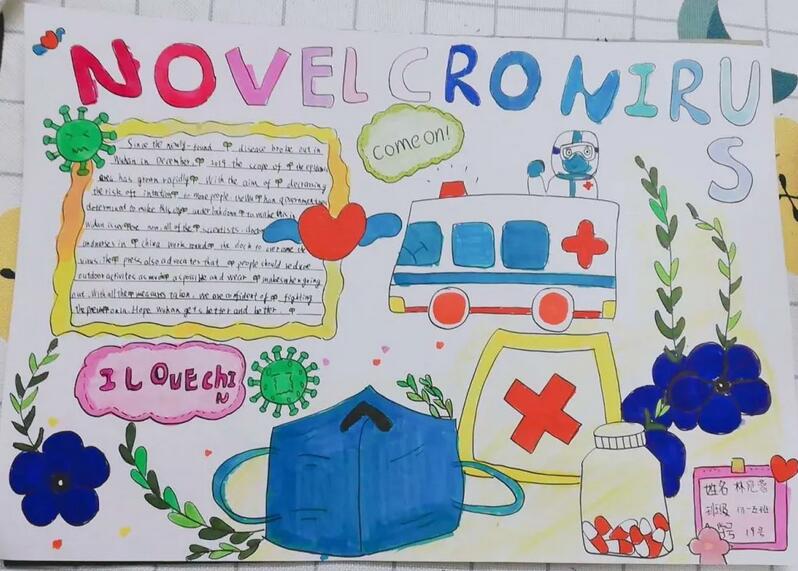 NOVEL CRONIRU
S
COME ON!
Since the newly-found disease broke out in
Wuhan in December, 2019 the scope of the
area has grown rapidly. With the aim of decreasing
the risk of to more people the government
determined to make this under lockdown to make this
Wuhan now all of the scientists
and nurses in china work round the clock to overcome the
virus. The press also advocates that people should reduce
outdoor activites as much as possible and wear when going
out. With all the measures taken, we are confident of fighting
the pneumonia. Hope Wuhan gets better and better.
I LOVE CHI
N
姓名 林
班级
学号 19号